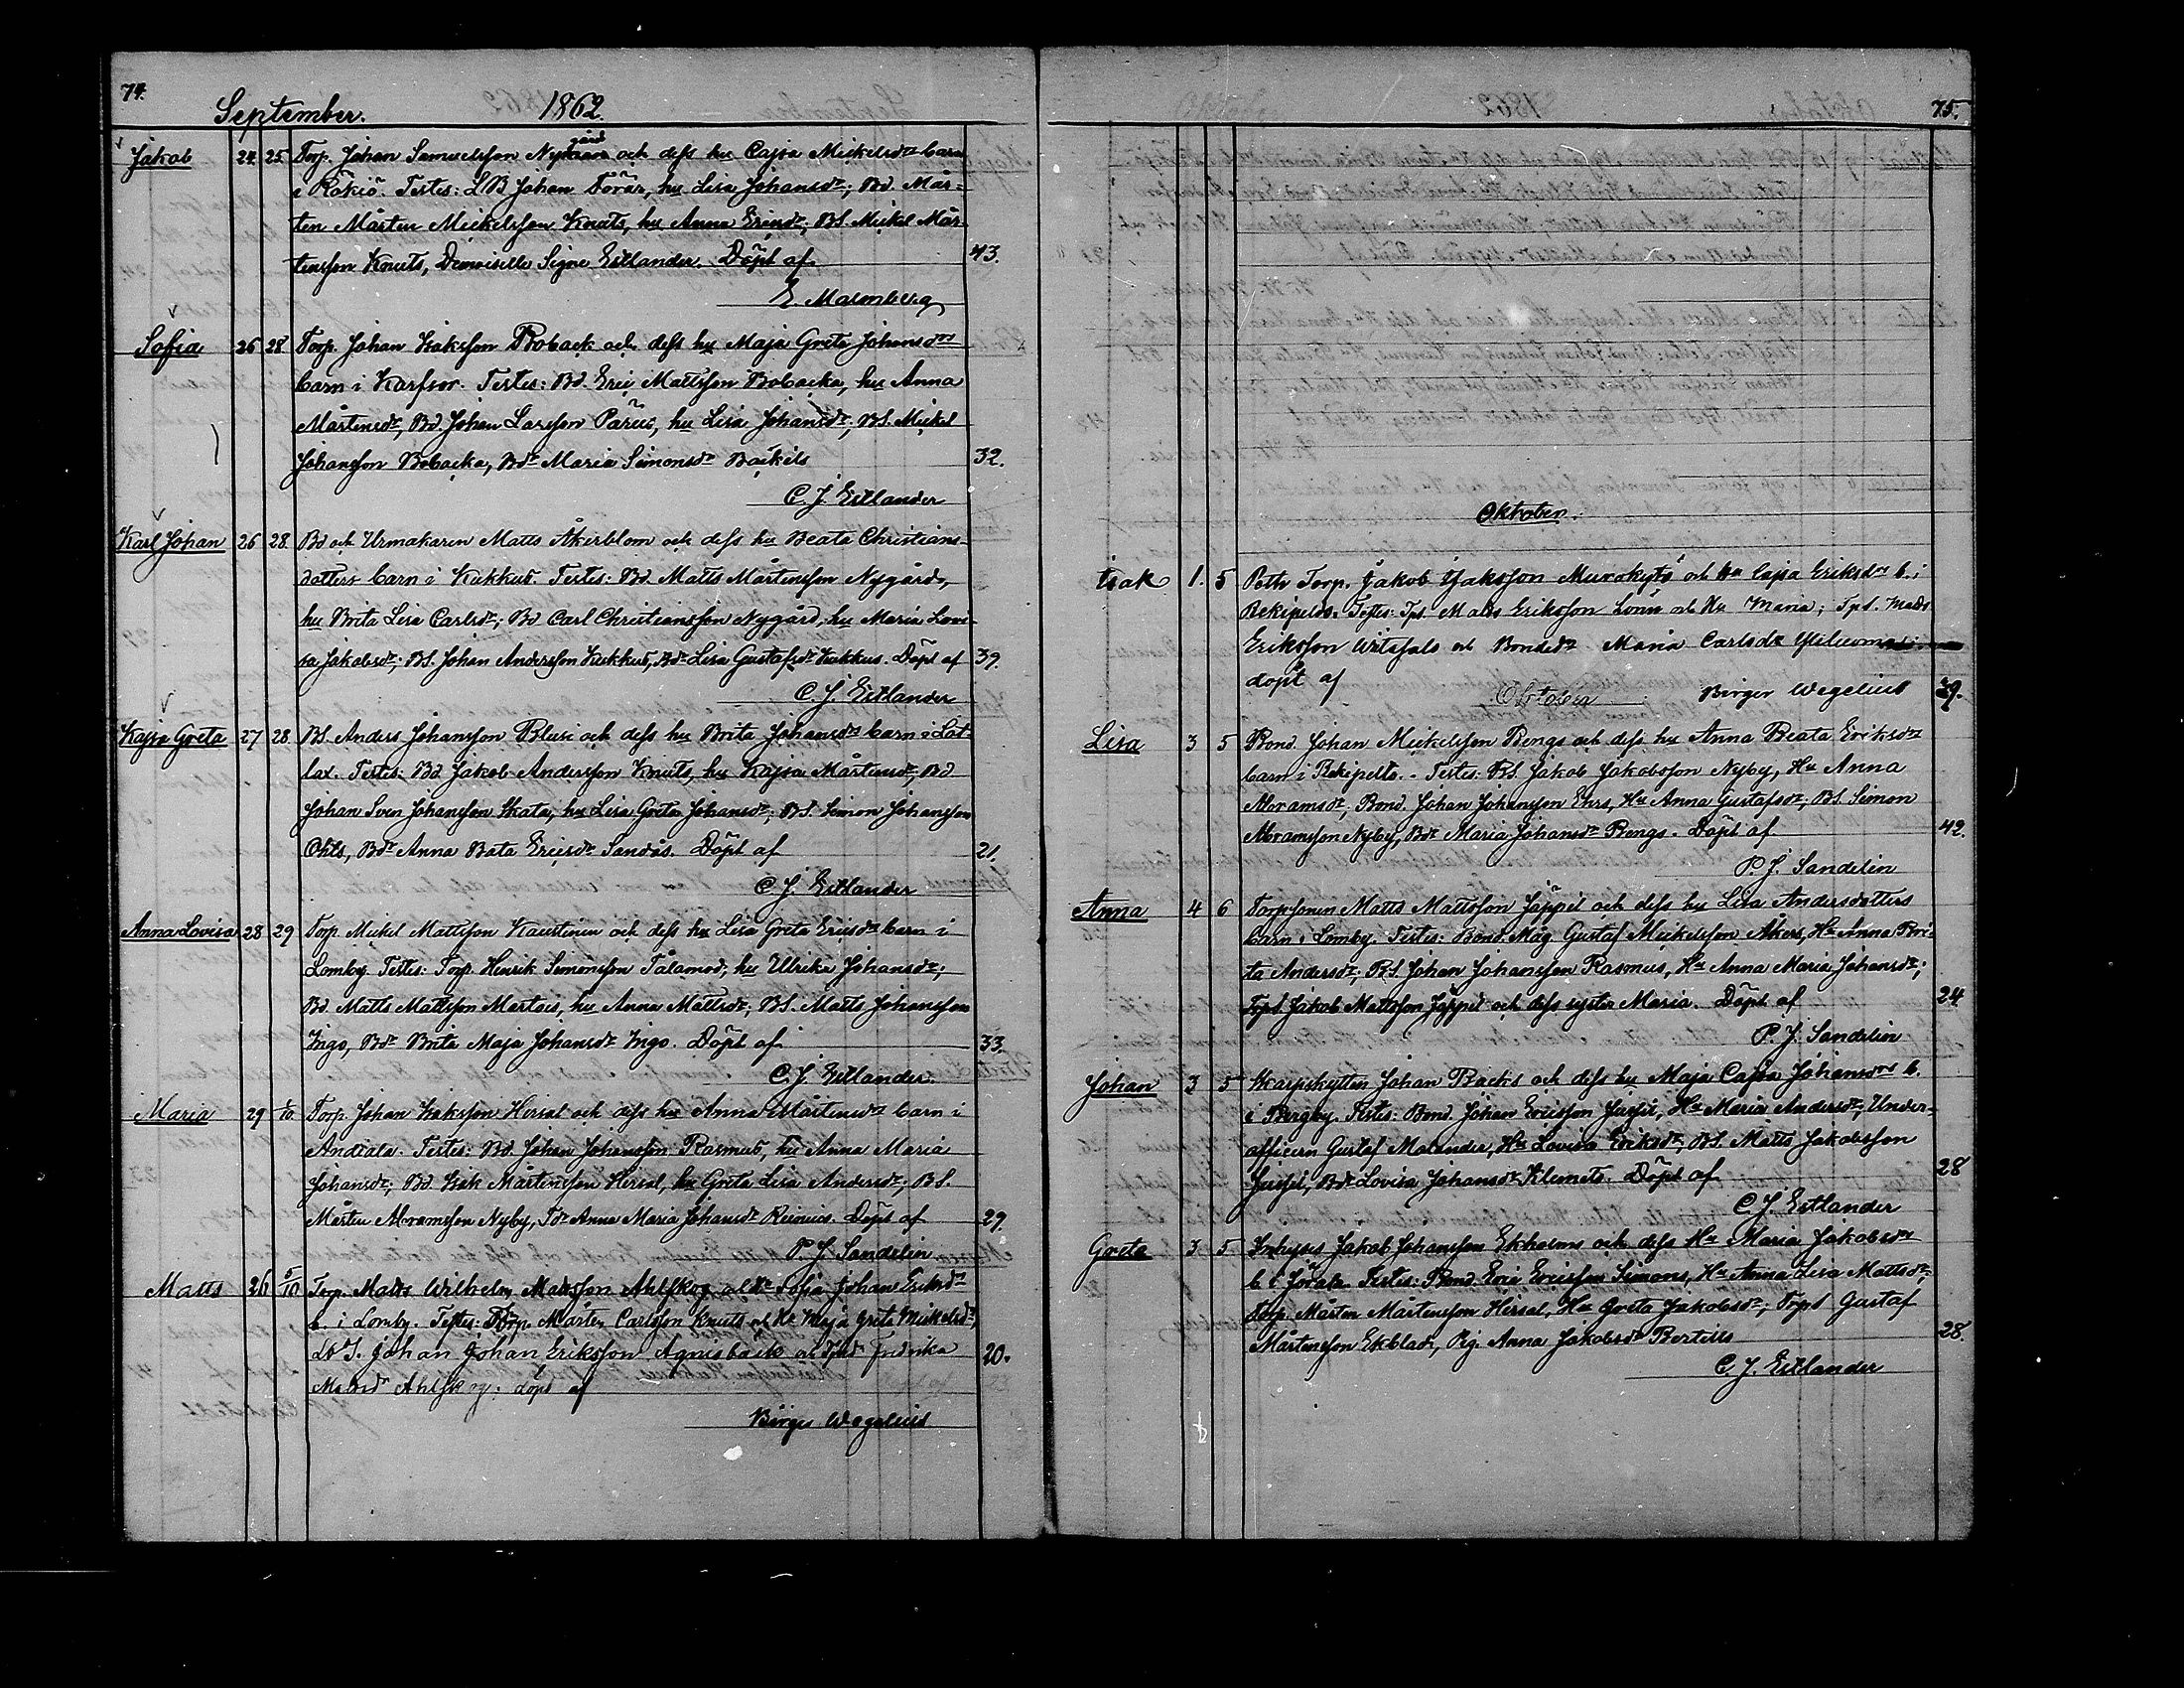 74.
September. 1862.
Jakob 24. 25. Torp. Johan Samuelsson Nygård och dess hu Cajsa Mickelsdrs barn
i Rökiö. Testes: LB Johan Förär, hu Lisa Johansdr; Bd. Mår-
ten Mårten Mickelsson Knuts, hu Anna Ericsdr; BS. Mickel Mår-
tensson Knuts, Demoiselle Signe Estlander. Döpt af 43.
E. Malmberg
Sofia 26 28 Torp. Johan Isaksson Roback och dess hu Maja Greta Johansdrs
barn i Karfsor. Testes: Bd. Eric Mattsson Bobacka, hu Anna
Mårtensdr, Bd. Johan Larsson Pärus, hu Lisa Johansdr; BS. Mickel
Johansson Bobacka, Bdr Maria Simonsdr Backils 32.
C. J. Estlander
Karl Johan 26 28. Bd och Urmakaren Matts Åkerblom och dess hu Beata Christians-
dotters barn i Kukkus. Testes: Bd. Matts Mårtensson Nygård,
hu Brita Lisa Carlsdr; Bd Carl Christiansson Nygård, hu Maria Lovi-
sa Jakobsdr; BS. Johan Andersson Kukkus, Bdr Lisa Gustafsdr Kukkus. Döpt af 39.
C. J. Estlander
Kajsa Greta 27 28. BS. Anders Johansson Blusi och dess hu Brita Johansdrs barn i Lot-
lax. Testes: Bd Jakob Andersson Knuts, hu Kajsa Mårtensdr, Bd
Johan Sven Johansson Skata, hu Lisa Greta Johansdr; BS. Simon Johansson
Ohls, Bdr Anna Bata Ericsdr Sandås. Döpt af 21.
C. J. Estlander
Anna Lovisa 28 29 Torp. Mickel Mattsson Kaustinen och dess hu Lisa Greta Ericsdrs barn i
Lomby. Testes: Torp. Henrik Simonsson Talamod, hu Ullrika Johansdr;
Bd. Matts Mattsson Martois, hu Anna Mattsdr; BS. Matts Johansson
Ingo, Bdr Brita Maja Johansdr Ingo. Döpt af 33.
C. J. Estlander.
Maria 29 1/10. Torp. Johan Isaksson Hersal och dess hu Anna Mårtensdrs barn i
Andiala. Testes: Bd. Johan Johansson Rasmus, hu Anna Maria
Johansdr; Bd. Isak Mårtensson Hersal, hu Greta Lisa Andersdr; BS.
Mårten Abramsson Nyby, Tdr Anna Maria Johansdr Reinius. Döpt af 29.
P. J. Sandelin
Matts 26 5/10 Torp. Matts Wilhelm Mattsson Ahlskog och hu Sofia Johans Eriksdrs
b. i Lomby. Testes: Torp. Mårten Carlsson Knuts och hu Maja Greta Mickelsdr,
LBS. Johan Johan Eriksson Agnisbäck och Fredrika 20.
Mattsdr Ahlskog: döpt af
Birger Wegelius
75.
Oktober.
Isak 1. 5 Torp. Jakob Isaksson Murakytö och hu Cajsa Eriksdrs b. i
Rekipelto. Testes: Tps. Matts Eriksson Lönn och Hu Maria; Tps. Matts
Eriksson och Bondedr Maria Carlsdr
döpt af Birger Wegelius 39.
Oktober
Lisa 3 5 Bond. Johan Mickelsson Bengs och dess hu Anna Beata Eriksdrs
barn i Rekipelto. - Testes: BS. Jakob Jakobsson Nyby, Hu Anna
Abramsdr; Bond. Johan Johansson Ehrs, Hu Anna Gustafsdr; BS. Simon
Abramsson Nyby, Bdr Maria Johansdr Bengs. Döpt af 42.
P. J. Sandelin
Anna 4 6 Torpsonen Matts Mattsson Jäppil och dess hu Lisa Andersdotters
barn i Lomby. Testes: Bond. Måg Gustaf Mickelsson Åkers, Hu Anna Bri-
ta Andersdr; BS. Johan Johansson Rasmus, Hu Anna Maria Johansdr;
Tps Jakob Mattsson Jäppil och dess syster Maria. Döpt af 24.
P. J. Sandelin
Johan 3 5 Skarpskytten Johan Backs och dess hu Maja Cajsa Johansdrs b.
i Bergby. Testes: Bond. Johan Ericsson Jussil, Hu Maria Andersdr, Under-
officern Gustaf Malander, Hu Lovisa Eriksdr, BS. Matts Jakobsson
Jussil, Bdr Lovisa Johansdr Klemets. Döpt af 28
C. J. Estlander
Greta 3 5 Inhyses Jakob Johansson Ekholm och dess Hu Maria Jakobsdrs
b. i Jörala. Testes: Bond. Eric Ericsson Simons, Hu Anna Lisa Mattsdr;
Torp. Mårten Mårtensson Hersal, Hu Greta Jakobsdr; Torps Gustaf
Mårtensson Ekblad, Pig. Anna Jakobsdr Bertills 28.
C. J. Estlander